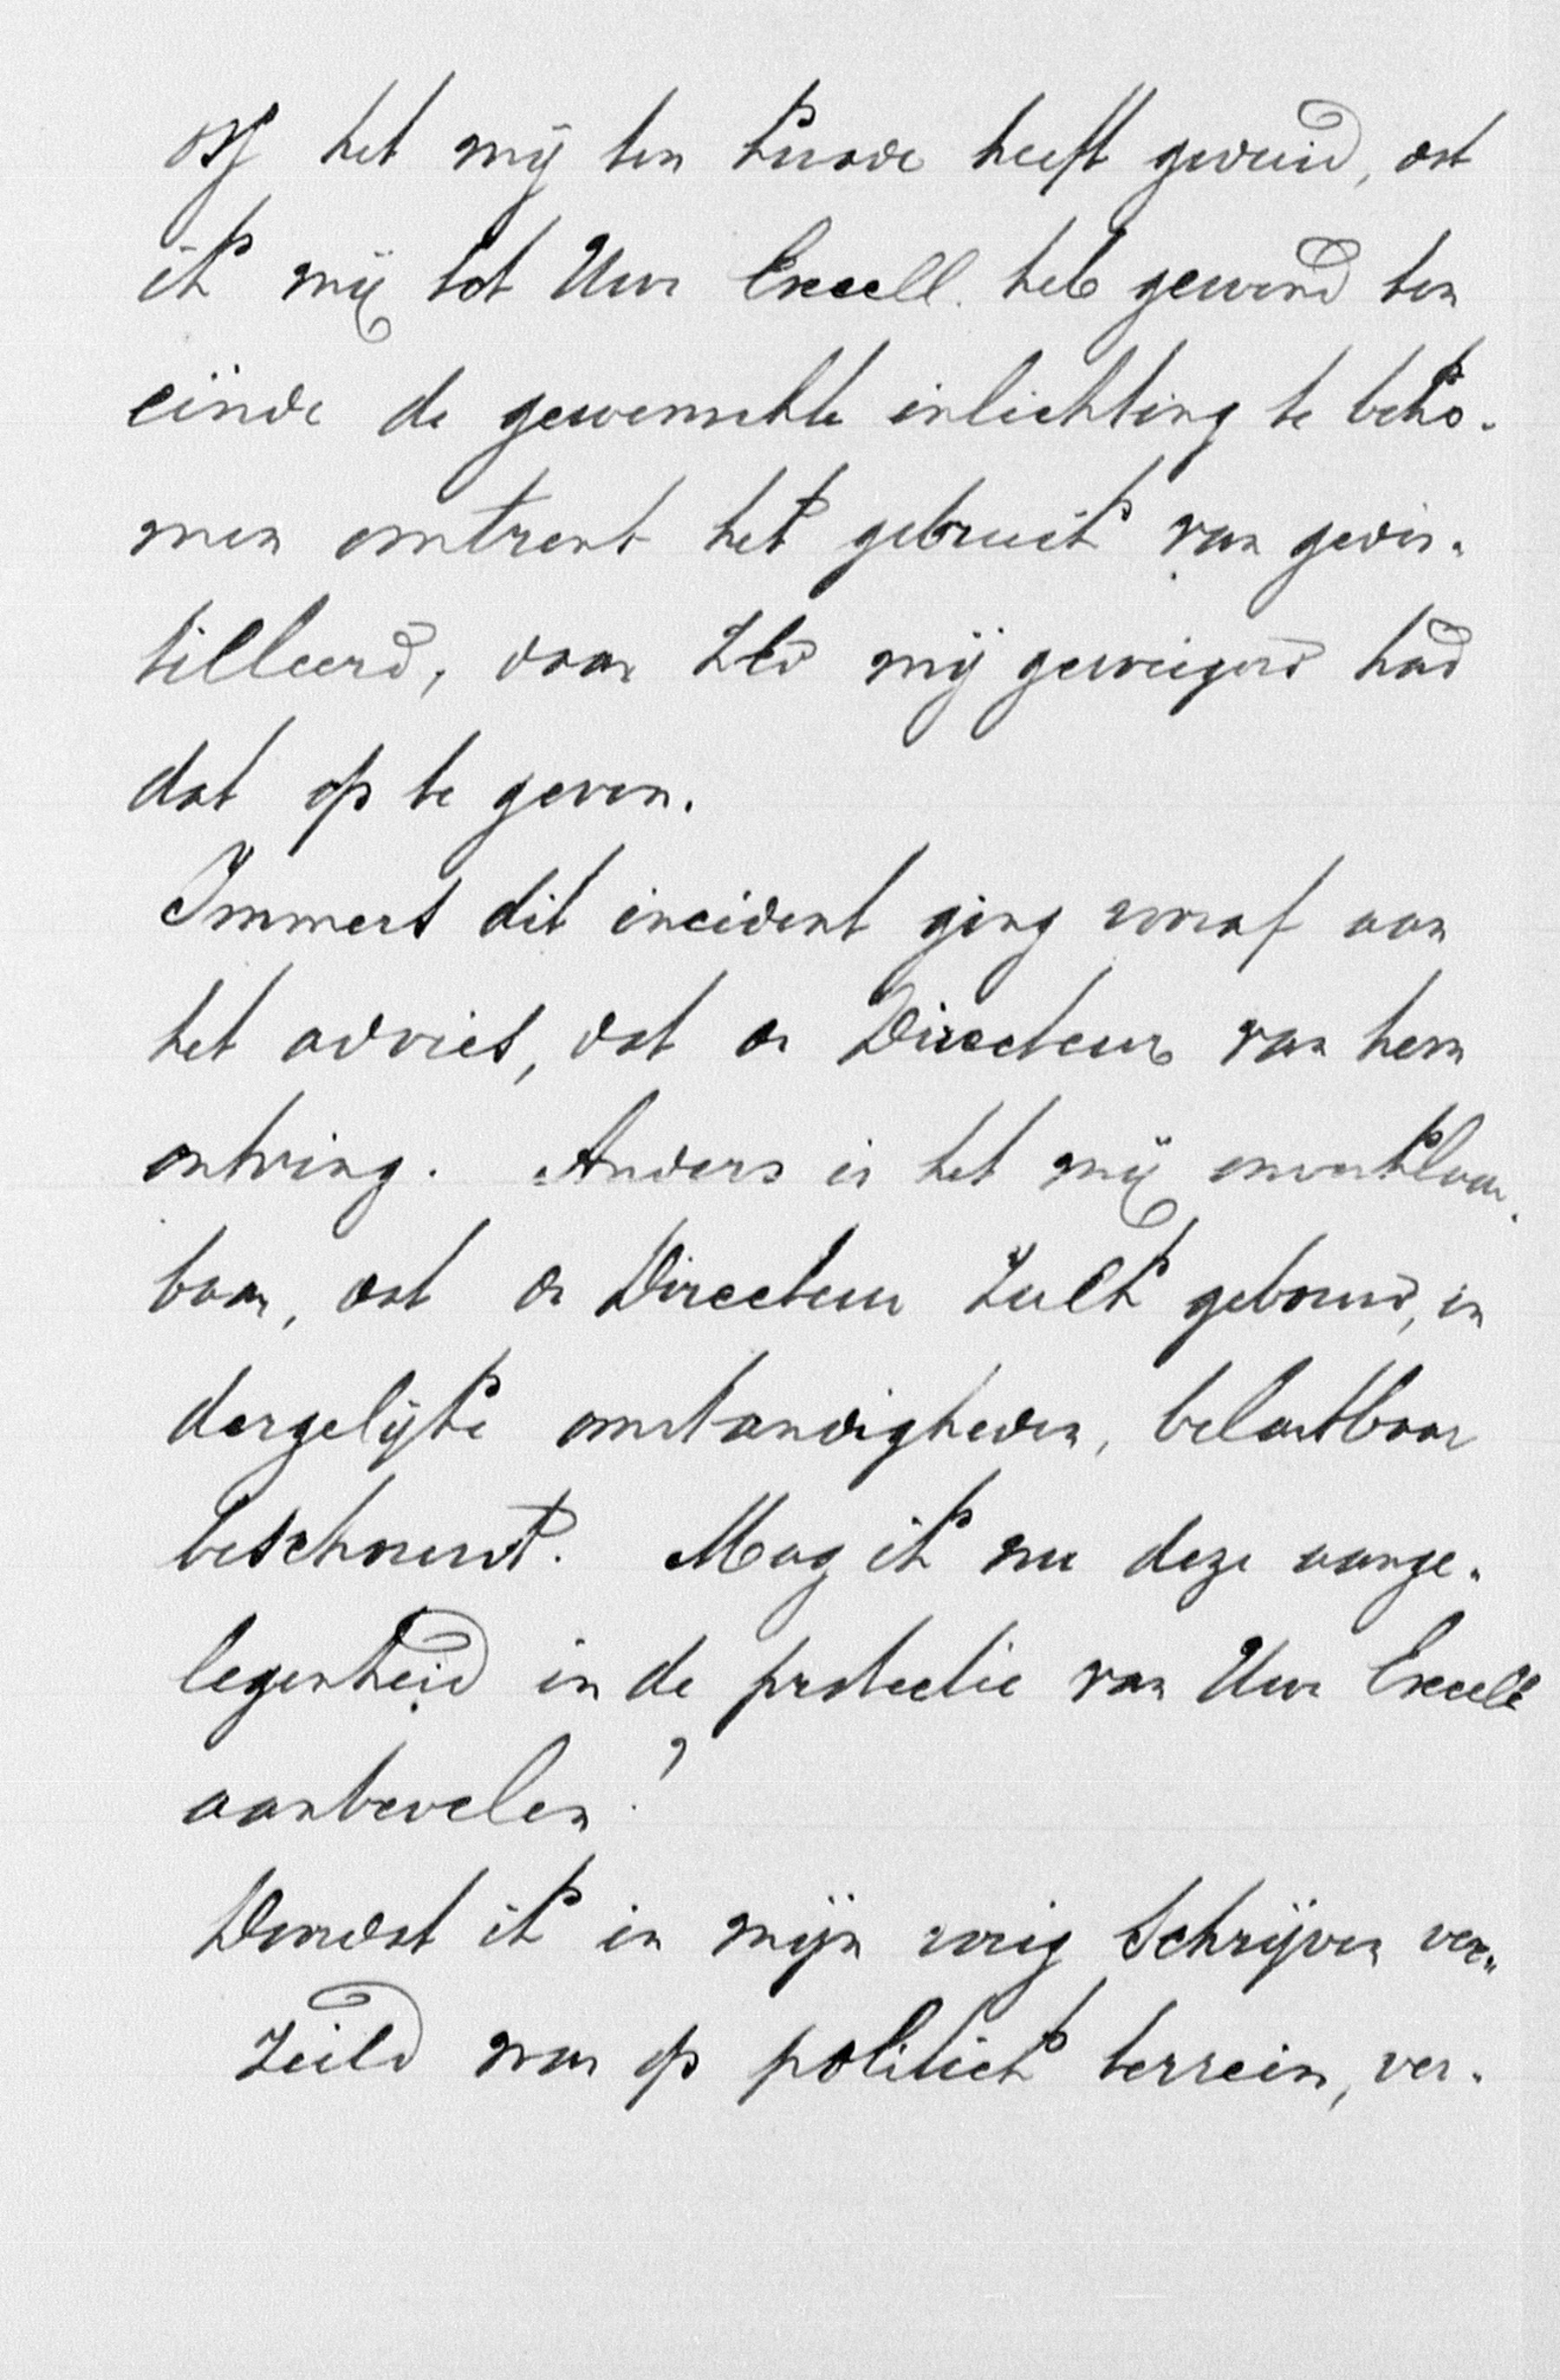 of het mij ten kwade heeft geduid, dat
ik mij tot Uwe Excell. heb gewend ten
einde de gewenschte inlichting te beko-
men omtrent het gebruik van gedis-
tilleerd, daar ZEd mij geweigerd had
dat op te geven.
Immers dit incident ging vooraf aan
het advies, dat de Directeur van hem
ontving. Anders is het mij onverklaar-
baar, dat de Directeur zulk gebouw, in
dergelijke omstandigheden, belastbaar
beschouwt. Mag ik nu deze aange-
legenheid in de protectie van Uwe Excell.
aanbevelen?
Doordat ik in mijn vorig schrijven ver-
zeild was op politiek terrein, ver-